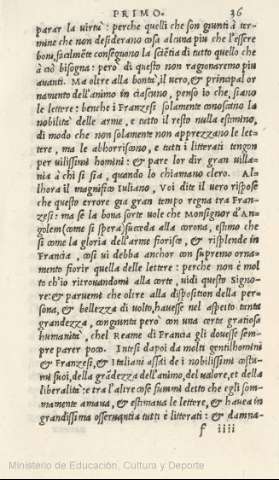 PRIMO. 36
parar la virtù: perche quelli che son giunti à ter-
mine che non desiderano cosa alcuna piu che l'essere
boni, facilmẽte conseguono la sciẽtia di tutto quello che
à ciò bisogna: però di questo non ragionaremo piu
auanti. Ma oltre alla bontà, il uero, & principal or
namento dell'animo in ciascuno, penso io che, siano
le lettere: benche i Franzesi solamente conoscano la
nobilità delle arme, e tutto il resto nulla estimino,
di modo che non solamente non apprezzano le let-
tere, ma le abhoriscono, e tutti i litterati tengon
per uilissimi homini: & pare lor dir gran uilla-
nia à chi si sia, quando lo chiamano clero. Al-
lhora il magnifico Iuliano, Voi dite il uero rispose
che questo errore gia gran tempo regna tra Fran-
zesi: ma se la bona sorte uole che Monsignor d'An
golem (come si spera) succeda alla corona, estimo che
si come la gloria dell'arme fiorisce, & risplende in
Francia, cosi ui debba anchor con supremo orna-
mento fiorir quella delle lettere: perche non è mol
to ch'io ritrouandomi alla corte, uidi questo Signo-
re: & paruemi che oltre alla disposition della per-
sona, & bellezza di uolto, hauesse nel aspetto tanta
grandezza, congiunta però con una certa gratiosa
humanità, chel Reame di Francia gli douesse sem-
pre parer poco. Intesi dapoi da molti gentilhomini
& Franzesi, & Italiani assai de i nobilissimi costu-
mi suoi, della grãdezza dell'animo, del valore, et della
liberalità: e tra l'altre cose fummi detto che egli som-
mamente amaua, & estimaua le lettere, & hauea in
grandissima osseruantia tutti è litterati: & damna-
f iiii
Ministerio de Educación, Cultura y Deporte